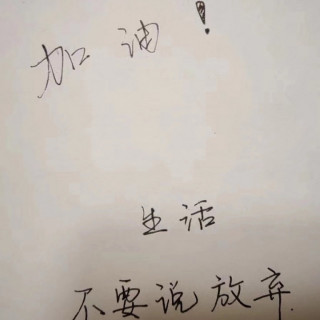 加油！
生活
不要说放弃.